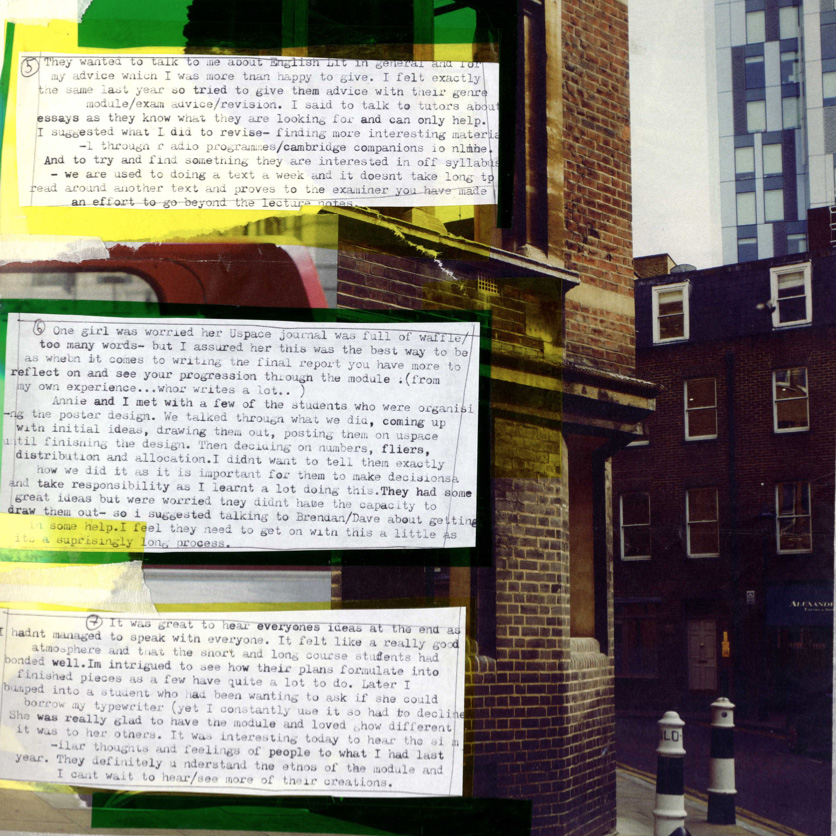 5 They wanted to talk to me about English Lit in general and for
my advice which I was more tnan happy to give. I felt exactly
the same last year so tried to give them advice with their genre
module/exam advice/revision. I said to talk to tutors about
essays as they know what they are looking for and can only help.
I suggested what I did to revise- finding more interesting materia
-l through r adio programmes/cambridge companions io
And to try and find something they are interested in off syllabus
- we are used to doing a text a week and it doesnt take long tp
read around another text and proves to the examiner you have made
an effort to go beyond the lecture notes.
6 One girl was worried her Uspace journal was full of waffle/
too many words- but I assured her this was the best way to be
as whebn it comes to writing the final report you have more to
reflect on and see your progression through the module :(from
my own experience...whor writes a lot.. )
Annie and I met with a few of the students who were organisi
-ng the poster design. We talked through what we did, coming up
with initial ideas, drawing them out, posting them on uspace
until finishing the design. Then deciding on numbers, fliers,
distribution and allocation.I didnt want to tell them exactly
how we did it as it is important for them to make decisionsa
and take responsibility as I learnt a lot doing this.They had some
great ideas but were worried tney didnt have the capacity to
draw them out- so i suggested talking to Brendan/Dave about getting
in some help.I feel they need to get on with this a little as
its a suprisingly long process.
7 It was great to hear everyones ideas at the end as
I hadnt managed to speak with everyone. It felt like a really good
atmosphere and that the snort and long course students had
bonded well.Im intrigued to see how their plans formulate into
finished pieces as a few have quite a lot to do. Later I
bumped into a student who had been wanting to ask if she could
borrow my typewriter (yet I constantly use it so had to decline
She was really glad to have the module and loved how different
it was to her others. It was interesting today to hear the si m
-ilar thoughts and feelings of people to what I had last
year. They definitely u nderstand the etnos of the module and
I cant wait to hear/see more of their creations.